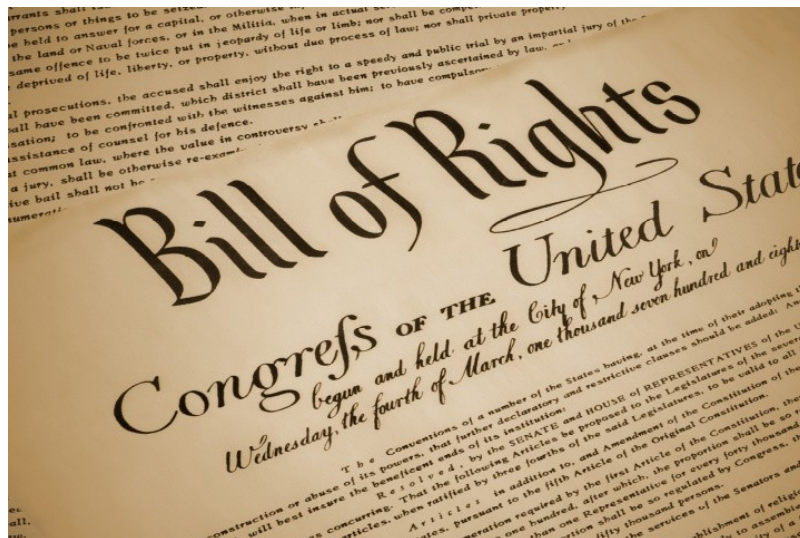 rrants shall
persons or things to be seized
be held to answer for a capital, or otherwise
the land or Naval forces, or in the Militia, when in actual
same offence to be twice put in jeopardy of life or limb; nor shall be
deprived of life, liberty, or property, without due process of law; nor shall private property
al prosecutions, the accused shall enjoy the right to a speedy and public trial by an impartial jury of the
all have been committed, which district shall have been previously ascertained by law,
sation; to be confronted with the witnesses against him; to have compulsory
ssistance of counsel for his defence.
t common law, where the value in controversy
a jury, shall be otherwise
ive bail shall not be
Bill of Rights
Congreſs OF THE United State
begun and held at the City of New York, on
Wednesday, the fourth of March, one thousand seven hundred and eight
The Conventions of a number of the States having, at the time of their adopting
onstruction or abuse of its powers, that further declaratory and restrictive clauses should be added:
will best insure the beneficent ends of its institution:
Resolved, by the SENATE and HOUSE of REPRESENTATIVES of the
s concurring. That the following Articles be proposed to the Legislatures of the
articles, when ratified by three fourths of the said Legislatures, to be valid to all
Articles in addition to, and Amendment of the Constitution of the
ates, pursuant to the fifth Article of the Original Constitution.
meration required by the first Article of the Constitution,
one hundred, after which, the proportion shall be so
than one Representative for every forty thousand
ortion shall be so regulated by Congress,
fifty thousand persons.
the services of the Senators and
blishment of